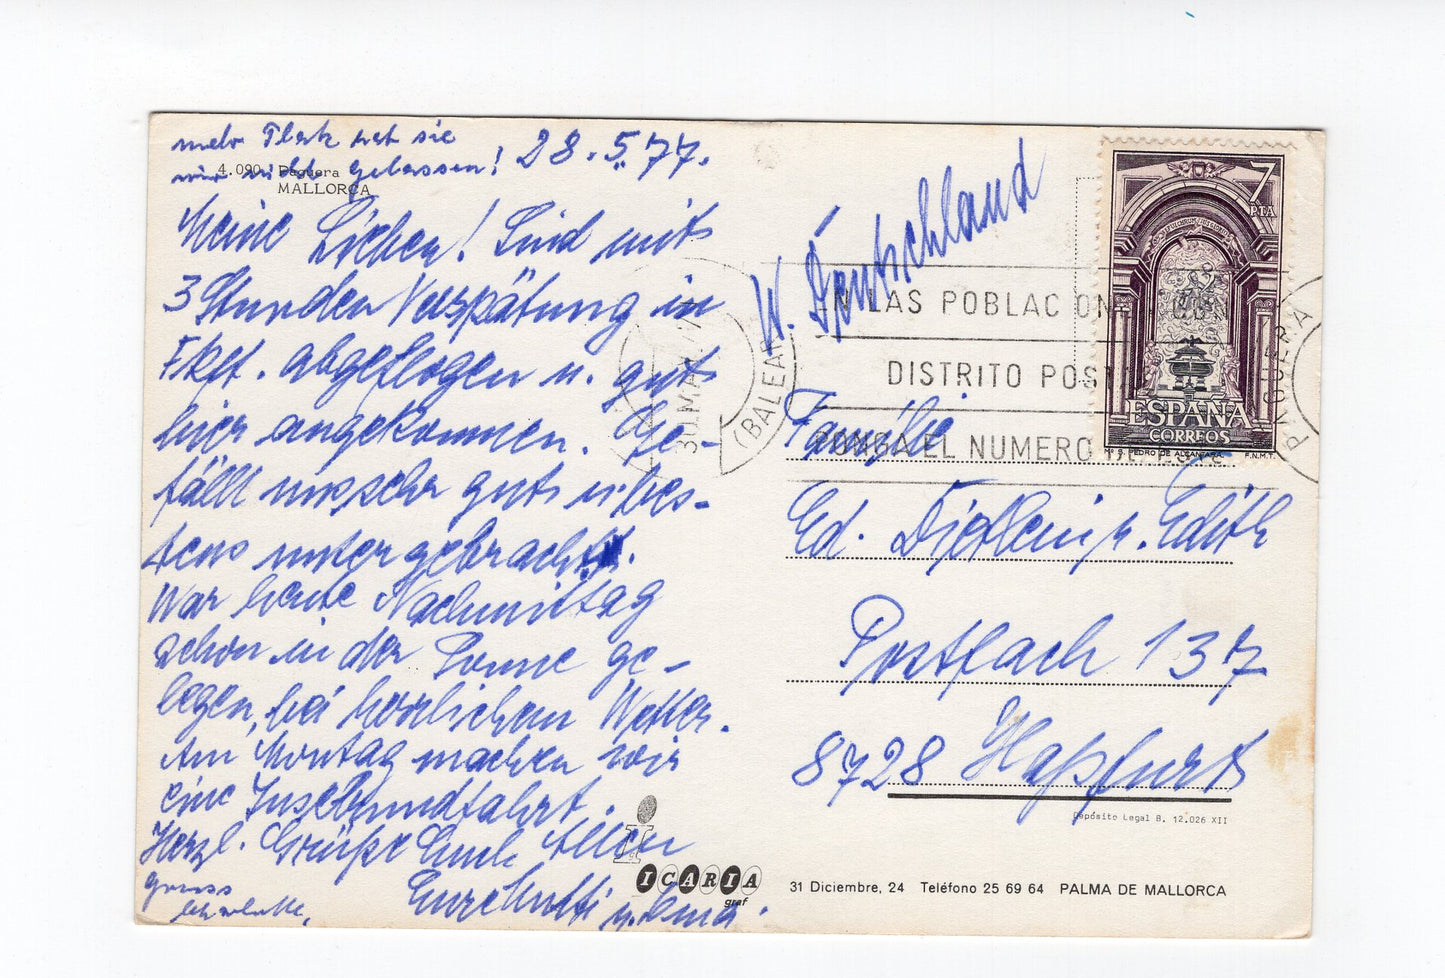 mehr Platz hat sie
mir nicht gelassen! 28.5.77.
4.090. Paguera
MALLORCA
Meine Lieben! Sind mit
3 Stunden Verspätung in
Fkft. abgeflogen u. gut
hier angekommen. Ge-
fällt uns sehr gut u. bes-
tens untergebracht.
War heute Nachmittag
schon in der Sonne ge-
legen, bei herrlichem Wetter.
Am Montag machen wir
eine Inselrundfahrt.
Herzl. Grüße Euch Allen
Eure Mutti u. Oma.
W. Deutschland
7
PTA
ESPAÑA
CORREOS
Mº S. PEDRO DE ALCANTARA. F.N.M.T.
EN LAS POBLACIONES CON
DISTRITO POSTAL
PONGA EL NUMERO DE ESTE
30 MAY 77
(BALEAR
PAGUERA
Familie
Ed. u. Edith
Postfach 137
8728 Haßfurt
Depósito Legal B. 12.026 XII
ICARIA
graf
31 Diciembre, 24 Teléfono 25 69 64 PALMA DE MALLORCA